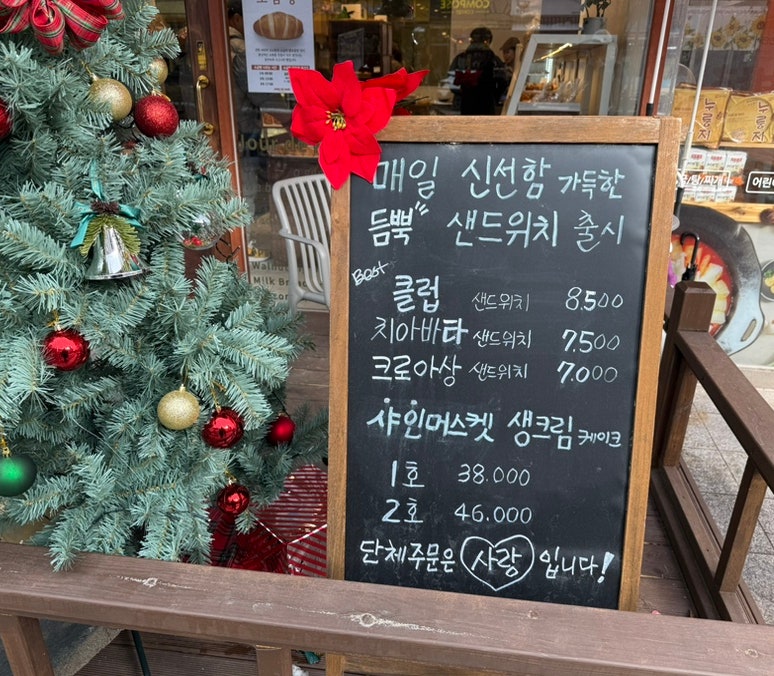 COMPOSE
매일 신선함 가득한
듬뿍 샌드위치 출시
Best
클럽 샌드위치 8.500
치아바타 샌드위치 7.500
크로아상 샌드위치 7.000
샤인머스켓 생크림 케이크
1호 38.000
2호 46.000
단체주문은 사랑 입니다!
누룽지
Walnut
Milk
어린